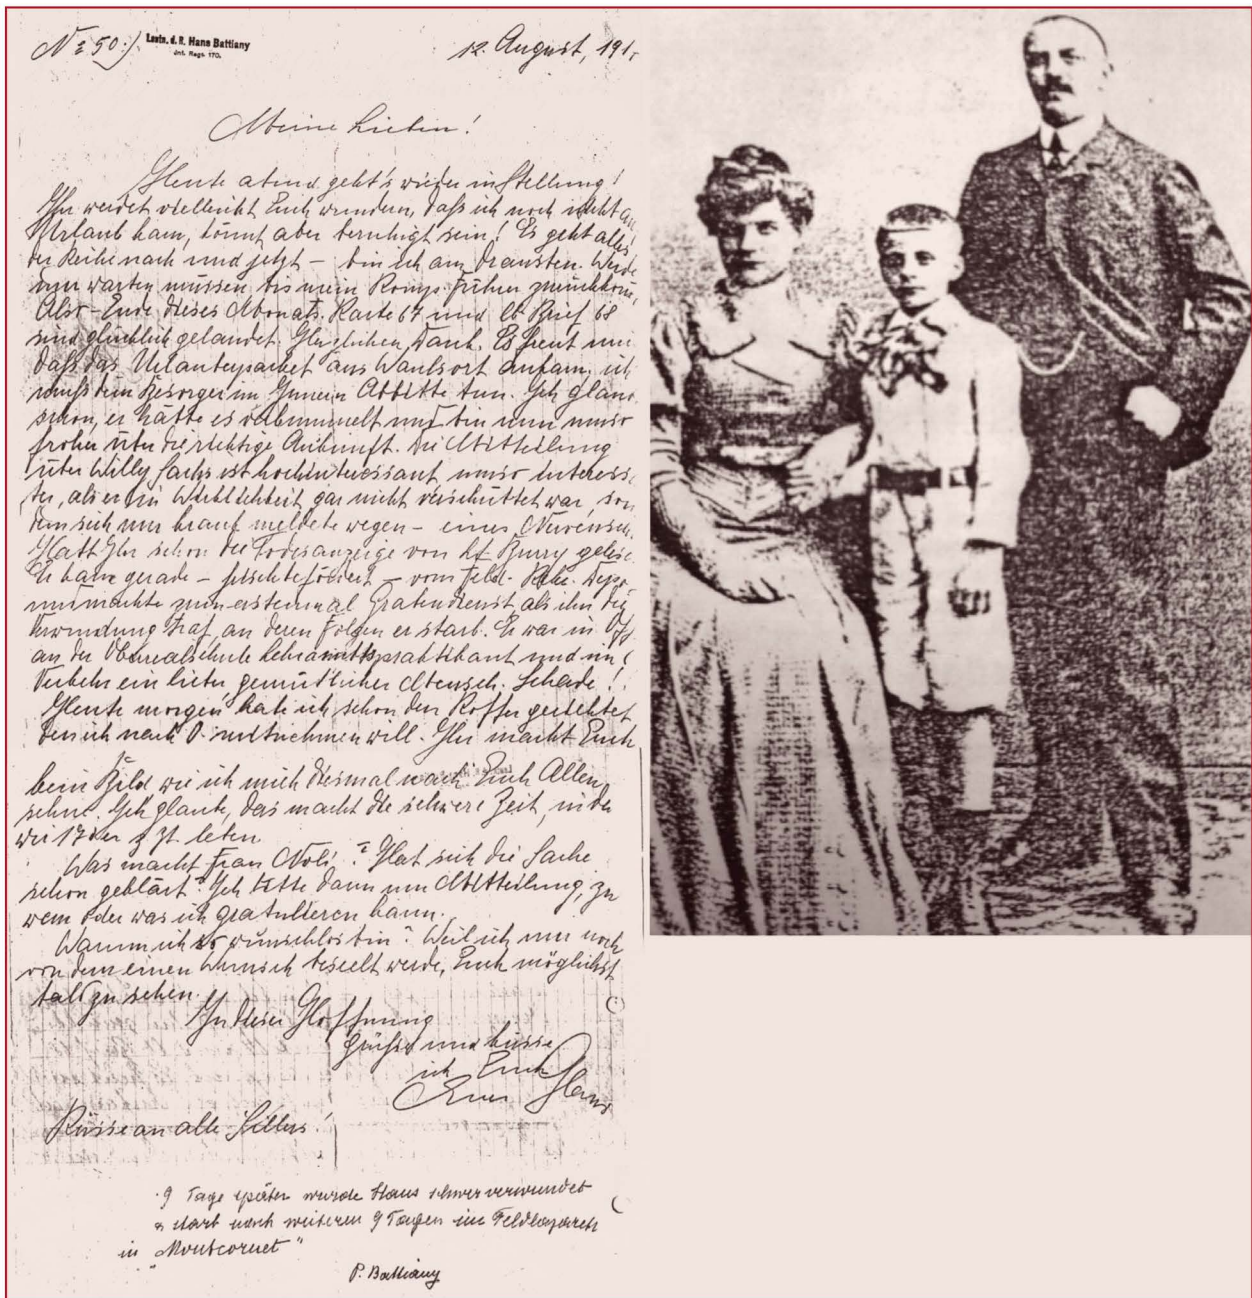 No 50.) Leutn. d. R. Hans Battiany
Inf. Regt. 170.
12. August, 191
Meine Lieben!
Heute abend geht's wieder in Stellung!
Ihr werdet vielleicht Euch wundern, daß ich noch nicht an
Urlaub kam, könnt aber beruhigt sein! Es geht alles
der Reihe nach und jetzt – bin ich am dransten. Werde
nur warten müssen bis mein Komp. Führer zurückkom
Also – Ende dieses Monats. Karte 67 und Brief 68
sind glücklich gelandet. Herzlichen Dank. Es freut mich
daß das Urlauberpaket aus ankam, ich
muß dem Besorger im Innern Abbitte tun. Ich glaub
schon, er hätte es verbummelt und bin nun umso
froher über die richtige Ankunft. Die Mitteilung
über Willy Sachs ist hochinteressant umso interess
ter, als er in Wirklichkeit gar nicht verschüttet war, son
dern sich nur krank meldete wegen – eines Nervensch
Habt Ihr schon die Todesanzeige von Lt Burry geles
Er kam gerade – frisch befördert – vom Feld-
und machte zum erstenmal Grabendienst, als ihn die
Verwundung traf, an deren Folgen er starb. Er war in Of
an der Oberrealschule Lehramtspraktikant und im
Verkehr ein lieber, gemütlicher Mensch. Schade!
Heute morgen hab ich schon den Koffer gerichtet
den ich nach O. mitnehmen will. Ihr macht Euch
kein Bild wie ich mich diesmal nach Euch Allen
sehne. Ich glaube, das macht die schwere Zeit, in der
wir 17der z. Zt. leben.
Was macht Frau Noli? Hat sich die Sache
schon geklärt? Ich bitte dann um Mitteilung, zu
wem oder was ich gratulieren kann.
Warum ich so wünschlos bin? Weil ich nur noch
von dem einen Wunsch beseelt werde, Euch möglichst
bald zu sehen.
In dieser Hoffnung
grüßt und küsst
ich Euch
Euer Hans
Küsse an alle Sillers!
9 Tage später wurde Hans schwer verwundet
& starb nach weiteren 9 Tagen im Feldlazarett
in "Montcornet"
P. Battiany